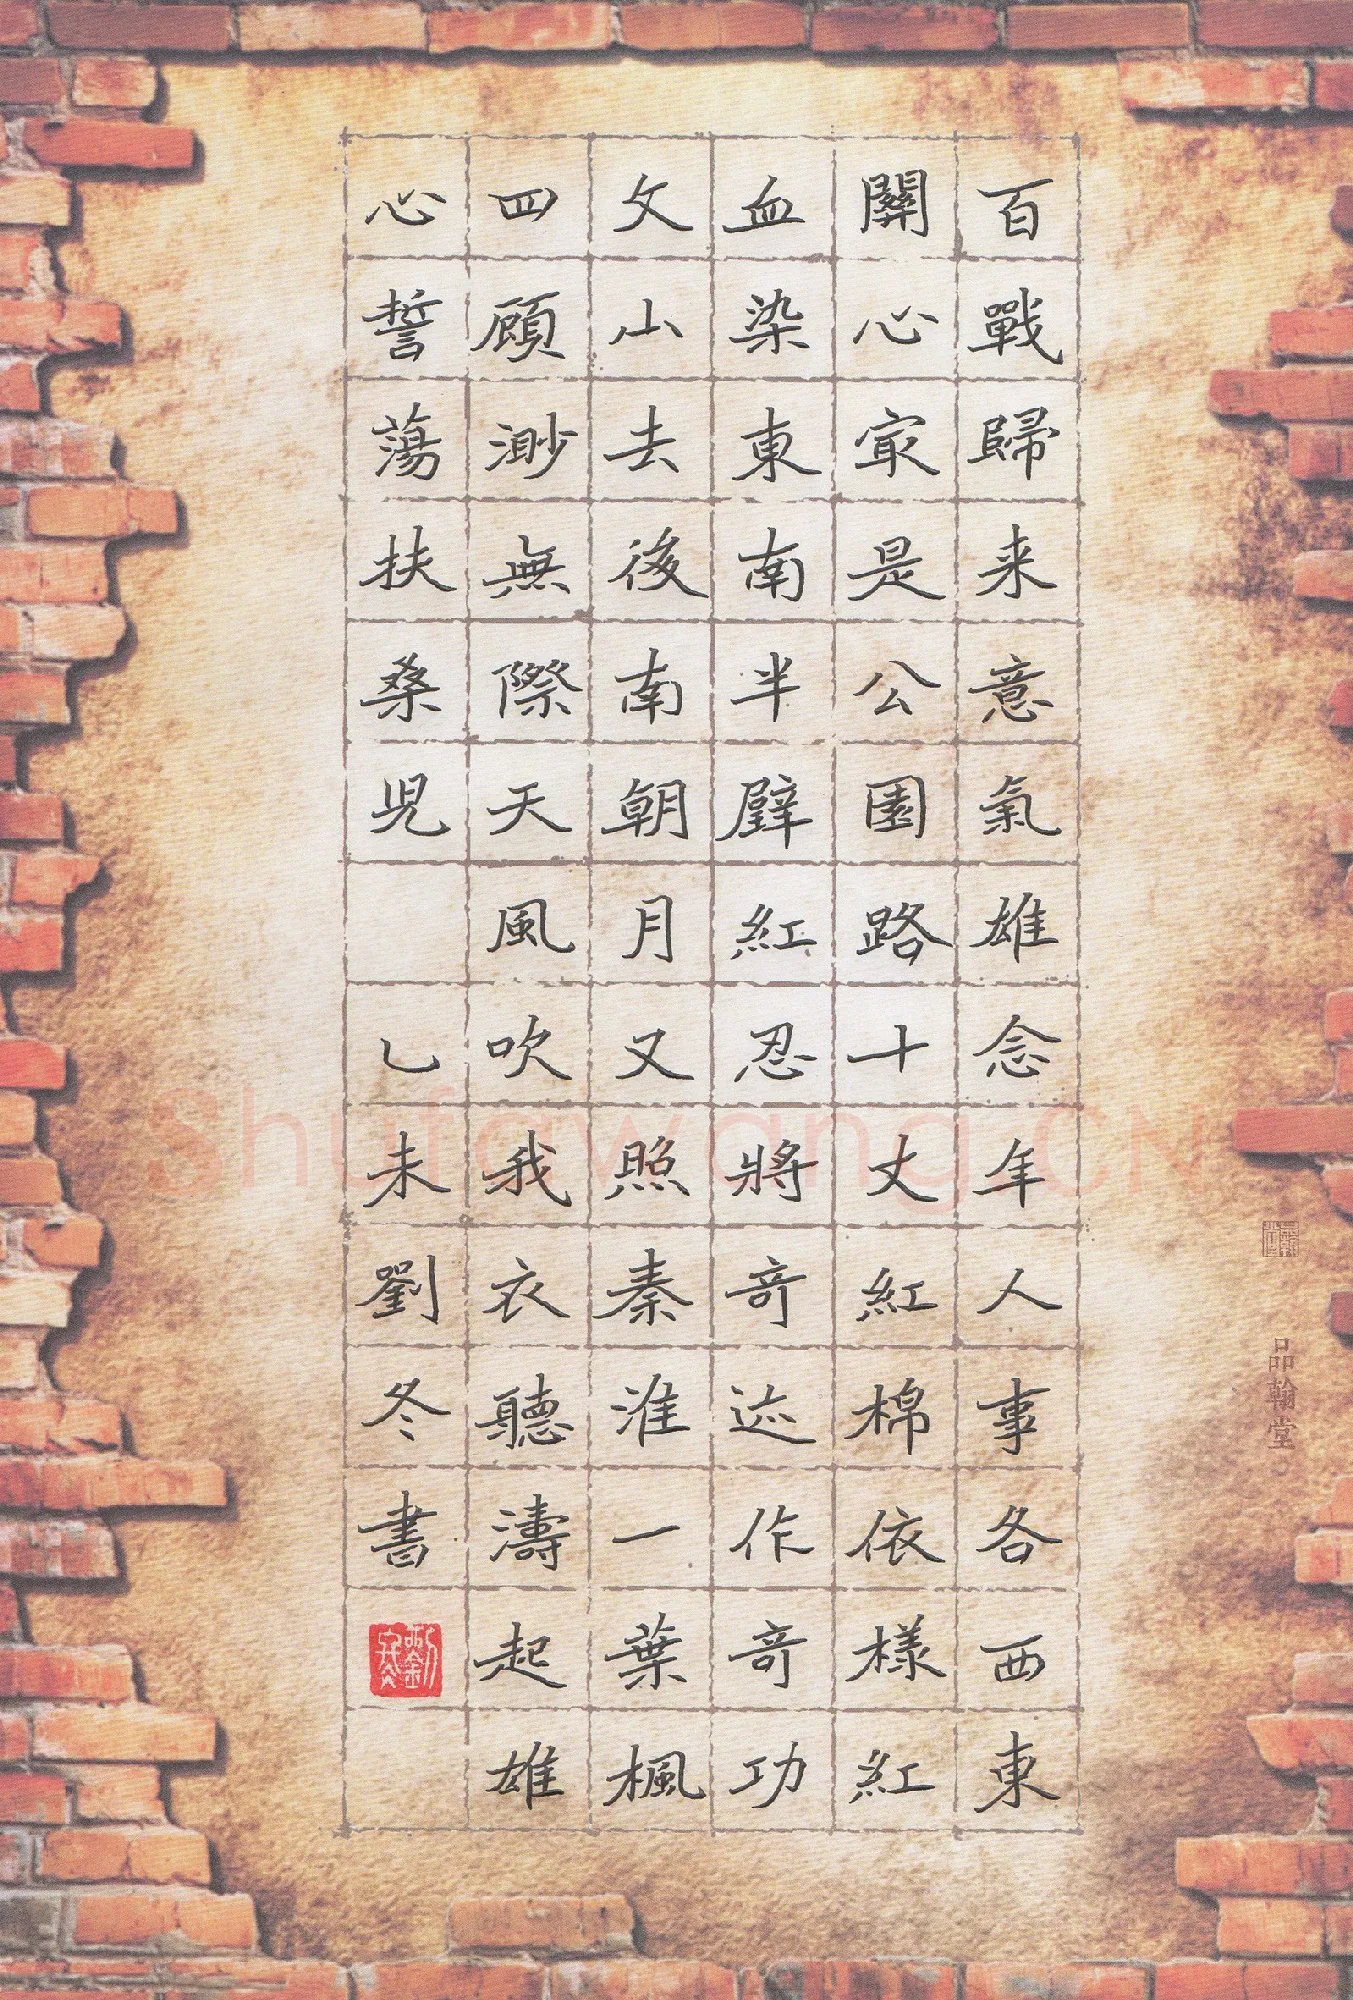 百戰歸来意氣雄念年人事各西東
關心冣是公園路十丈紅棉依樣紅
血染東南半壁紅忍將奇迹作奇功
文山去後南朝月又照秦淮一葉楓
四顧渺無際天風吹我衣聽濤起雄
心誓蕩扶桑児 乙未劉冬書
品翰堂
Shufawang.CN